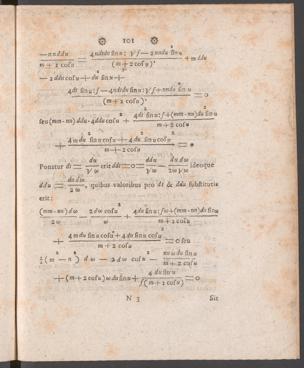 101
—nnddu / m + 2 cosu = 4ndtdu sinu: √f — 2nndu² sinu / (m + 2 cosu)² + mddu
— 2ddu cosu + du² sinu +
4dt sinu: f — 4ndtdu sinu: √f + nndu² sinu / (m + 2 cosu)² = 0
seu (mm - nn) ddu - 4ddu cosu² + 4dt² sinu: f + (mm - nn) du² sinu / m + 2 cosu
+ 4mdu² sinu cosu + 4du² sinu cosu² / m + 2 cosu = 0
Ponatur dt = du / √w erit ddt = 0 = ddu / √w — dudw / 2w√w ideoque
ddu = dudw / 2w, quibus valoribus pro dt & ddu substitutis
erit:
(mm - nn) dw / 2w — 2dw cosu² / w + 4du sinu: fw + (mm - nn) du sinu / m + 2 cosu
+ 4mdu sinu cosu + 4du sinu cosu² / m + 2 cosu = 0 seu
½ (m² — n²) dw — 2dw cosu² — nnw du sinu / m + 2 cosu
+ (m + 2 cosu) w du sinu + 4 du sinu / f (m + 2 cosu) = 0
N 3 Sit